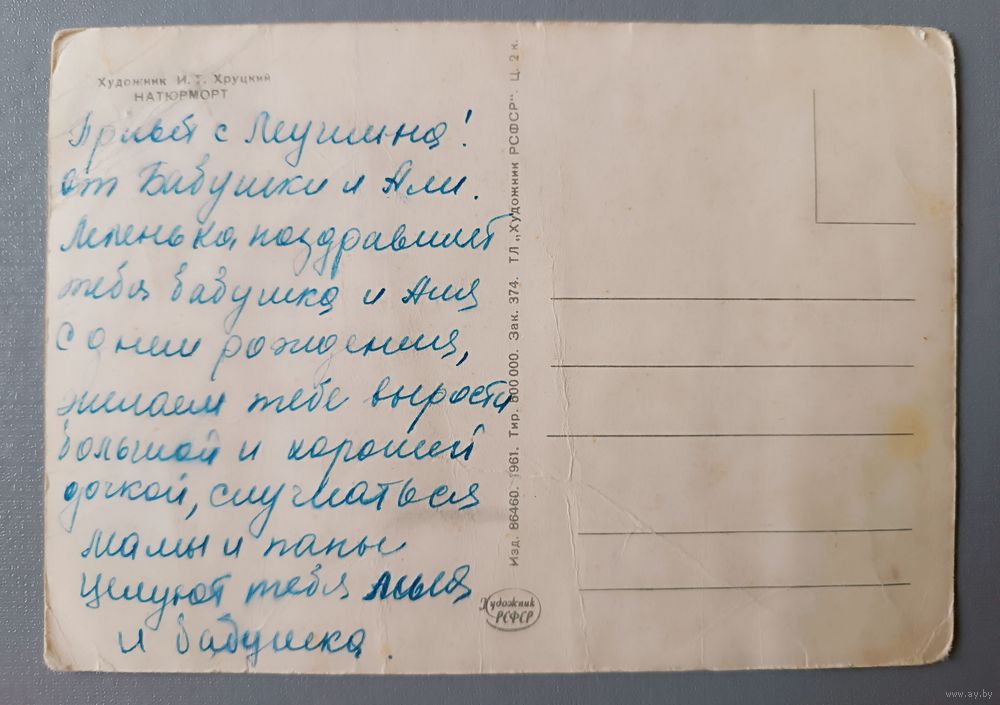 Художник И. Т. Хруцкий
НАТЮРМОРТ
Привет с
от Бабушки и Али.
поздравляет
тебя бабушка и Аля
С днем рождения,
желаем тебе вырости
большой и хорошей
дочкой, слушаться
мамы и папы
Целуют тебя
и бабушка.
Изд. 86460. 1961. Тир. 800 000. Зак. 374. ТЛ „Художник РСФСР“. Ц. 2 к.
Художник
РСФСР
www.ay.by